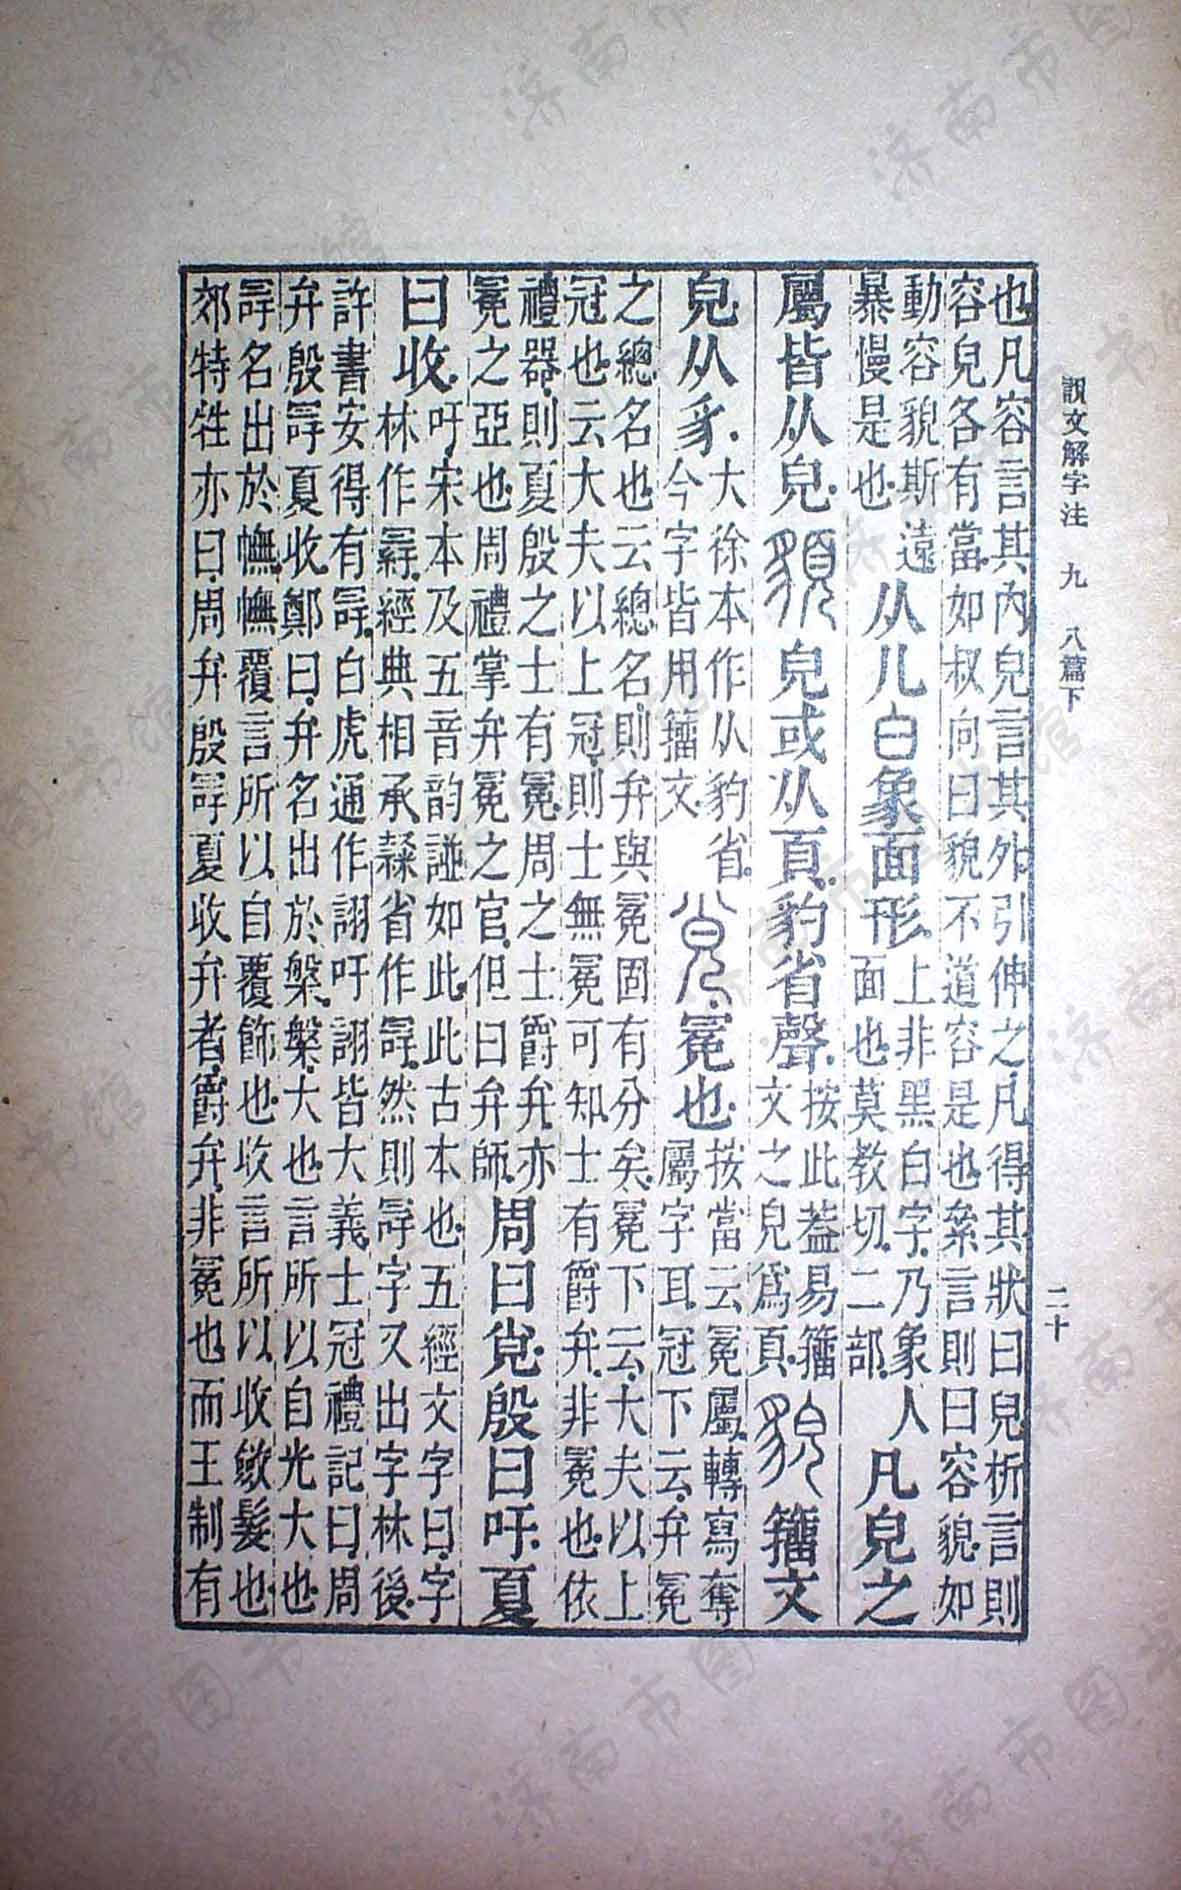 說文解字注 九 八篇下 二十
也凡容言其內皃言其外引伸之凡得其狀曰皃析言則
容皃各有當如叔向曰貌不道容是也絫言則曰容貌如
動容貌斯遠
暴慢是也
从儿白象面形
上非黑白字乃象人
面也莫教切二部
凡皃之
屬皆从皃䫉皃或从頁豹省聲
按此葢易籒
文之皃爲頁
貌籒文
皃从豸
大徐本作从豹省
今字皆用籒文
覍冕也
按當云冕屬轉寫奪
屬字耳冠下云弁冕
之總名也云總名則弁與冕固有分矣冕下云大夫以上
冠也云大夫以上冠則士無冕可知士有爵弁非冕也依
禮器則夏殷之士有冕周之士爵弁亦
冕之亞也周禮掌弁冕之官但曰弁師
周曰覍殷曰吁夏
曰收
吁宋本及五音韵譜如此此古本也五經文字曰字
林作經典相承隸省作冔然則冔字又出字林後
許書安得有冔白虎通作詡吁詡皆大義士冠禮記曰周
弁殷冔夏收鄭曰弁名出於槃槃大也言所以自光大也
冔名出於幠幠覆言所以自覆飾也收言所以收斂髮也
郊特牲亦曰周弁殷冔夏收弁者爵弁非冕也而王制有
济南市图书馆